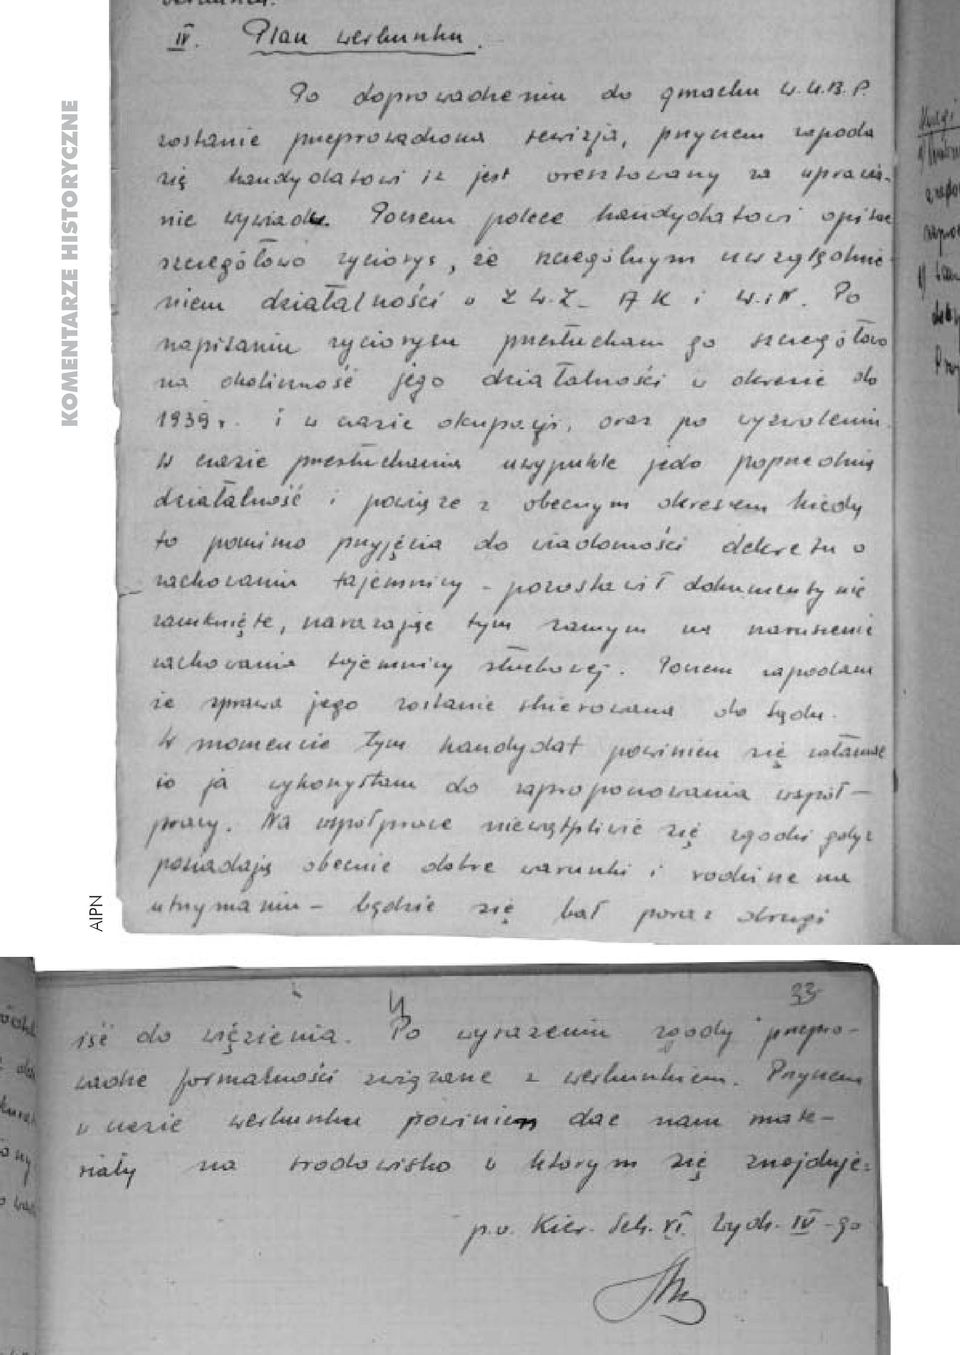 KOMENTARZE HISTORYCZNE
IV. Plan werbunku.
Po doprowadzeniu do gmachu W.U.B.P.
zostanie przeprowadzona rewizja, przyczem zapoda
się kandydatowi iż jest aresztowany za uprawia-
nie wywiadu. Poczem polecę kandydatowi opisać
szczegółowo życiorys, ze szczególnym uwzględnie-
niem działalności w Z.W.Z. AK i W.iN. Po
napisaniu życiorysu przesłucham go szczegółowo
na okoliczność jego działalności w okresie do
1939r. i w czasie okupacji, oraz po wyzwoleniu.
W czasie przesłuchania uwypuklę jego poprzednią
działalność i powiążę z obecnym okresem kiedy
to pomimo przyjęcia do wiadomości dekretu o
zachowaniu tajemnicy - pozostawił dokumenty nie
zamknięte, narażając tym samym na naruszenie
zachowania tajemnicy służbowej. Poczem zapodam
że sprawa jego zostanie skierowana do Sądu.
W momencie tym kandydat powinien się załamać
co ja wykorzystam do zaproponowania współ-
pracy. Na współpracę niewątpliwie się zgodzi gdyż
posiadają obecnie dobre warunki i rodzinę na
utrzymaniu - będzie się bał poraz drugi
AIPN
33
iść do więzienia. Po wyrażeniu zgody przepro-
wadzę formalności związane z werbunkiem. Przyczem
w czasie werbunku powinien dać nam mate-
riały na środowisko w którym się znajduje.
p.o. Kier. Sek. VI. Wydz. IV-go